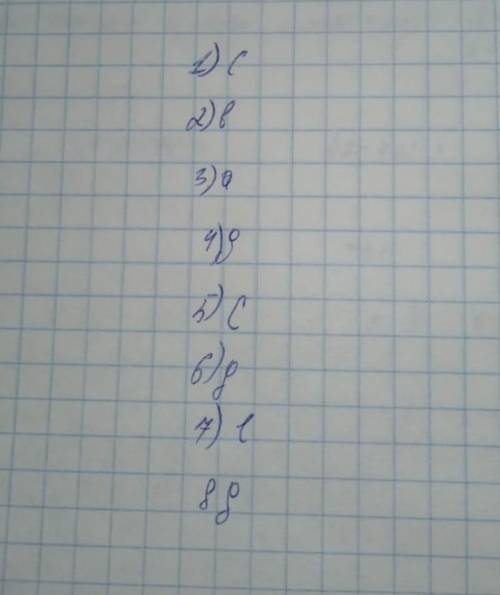 1) c
2) в
3) a
4) g
5) c
6) g
7) l
8 g